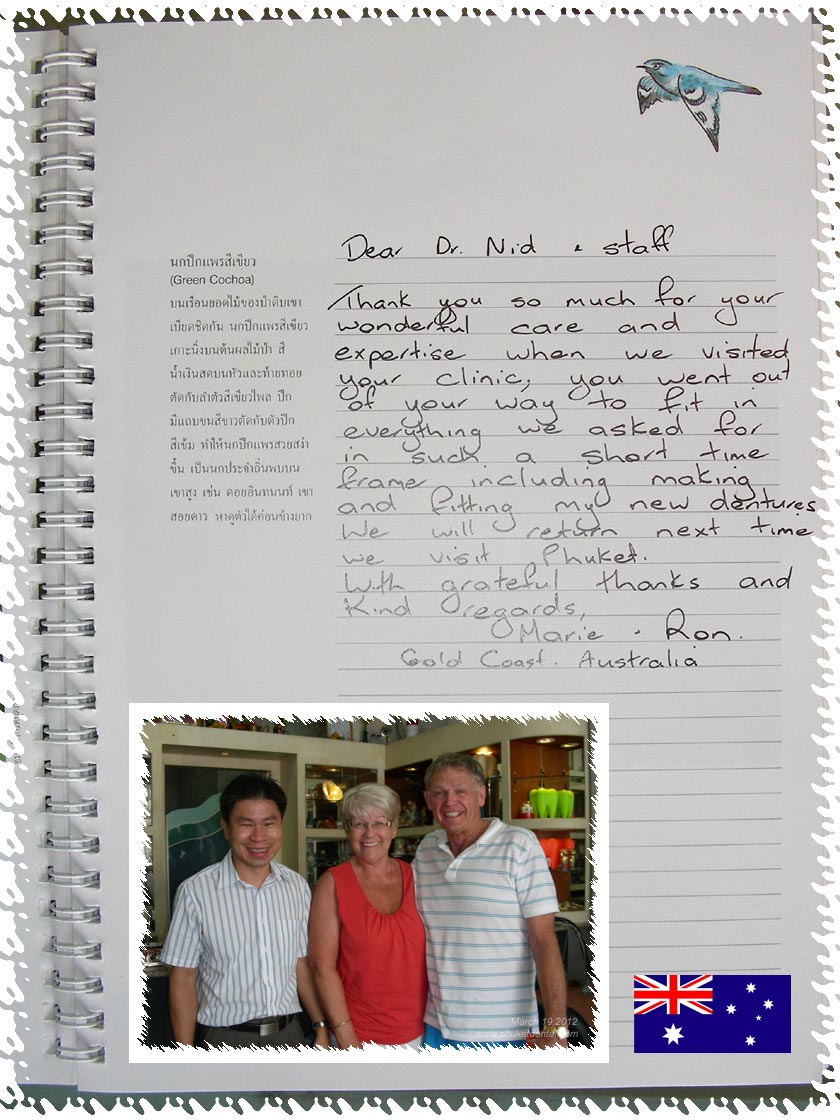 Dear Dr. Nid & staff
นกปีกแพรสีเขียว
(Green Cochoa)
บนเรือนยอดไม้ของป่าดิบเขา
เบียดชิดกัน นกปีกแพรสีเขียว
เกาะนิ่งบนต้นผลไม้ป่า สี
น้ำเงินสดบนหัวและท้ายทอย
ตัดกับลำตัวสีเขียวไพล ปีก
มีแถบขนสีขาวตัดกับตัวปีก
สีเข้ม ทำให้นกปีกแพรสวยสง่า
ขึ้น เป็นนกประจำถิ่นพบบน
เขาสูง เช่น ดอยอินทนนท์ เขา
สอยดาว หาดูตัวได้ค่อนข้างยาก
Thank you so much for your
wonderful care and
expertise when we visited
your clinic, you went out
of your way to fit in
everything we asked for
in such a short time
frame including making
and fitting my new dentures
We will return next time
we visit Phuket.
With grateful thanks and
Kind regards,
Marie & Ron.
Gold Coast. Australia
March 19 2012